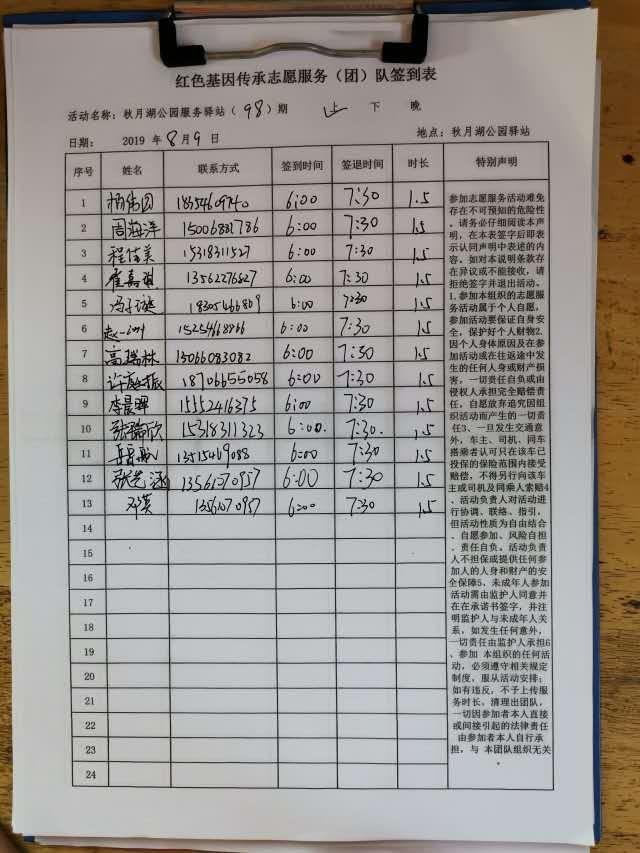 红色基因传承志愿服务（团）队签到表
活动名称：秋月湖公园服务驿站（98）期 上 下 晚
日期： 2019 年 8 月 9 日 地点：秋月湖公园驿站
序号 姓名 联系方式 签到时间 签退时间 时长 特别声明
1 6:00 7:30 1.5
2 周海洋 15006881786 6:00 7:30 1.5
3 程佳美 15318311527 6:00 7:30 1.5
4 13562276827 6:00 7:30 1.5
5 18305466809 6:00 7:30 1.5
6 6:00 7:30 1.5
7 高瑞林 15066083082 6:00 7:30 1.5
8 许庭振 18706655058 6:00 7:30 1.5
9 李晨晖 15552416375 6:00 7:30 1.5
10 张璐欣 15318311323 6:00. 7:30. 1.5
11 13515469088 6:00 7:30 1.5
12 张艺涵 13561070957 6:00 7:30 1.5
13 邓英 13561070957 6:00 7:30 1.5
14
15
16
17
18
19
20
21
22
23
24
参加志愿服务活动难免
存在不可预知的危险性
。请务必仔细阅读本声
明，在本表签字后即表
示认同声明中表述的内
容。如对本说明条款存
在异议或不能接收，请
拒绝签字并退出活动。
1.参加本组织的志愿服
务活动属于个人自愿，
参加活动要保证自身安
全，保护好个人财物2.
因个人身体原因及在参
加活动或在往返途中发
生的任何人身或财产损
害，一切责任自负或由
侵权人承担完全赔偿责
任，自愿放弃追究因组
织活动而产生的一切责
任3、一旦发生交通意
外，车主、司机、同车
搭乘者认可只在该车已
投保的保险范围内接受
赔偿，不得另行向该车
主或司机及同乘人索赔4
、活动负责人对活动进
行协调、联络、指引，
但活动性质为自由结合
、自愿参加、风险自担
、责任自负。活动负责
人不担保或提供任何参
加人的人身和财产的安
全保障5、未成年人参加
活动需由监护人同意并
在在承诺书签字，并注
明监护人与未成年人关
系，如发生任何意外，
一切责任由监护人承担6
、参加 本组织的任何活
动，必须遵守相关规定
制度，服从活动安排；
如有违反，不予上传服
务时长，清理出团队，
一切因参加者本人直接
或间接引起的法律责任
由参加者本人自行承
担，与 本团队组织无关